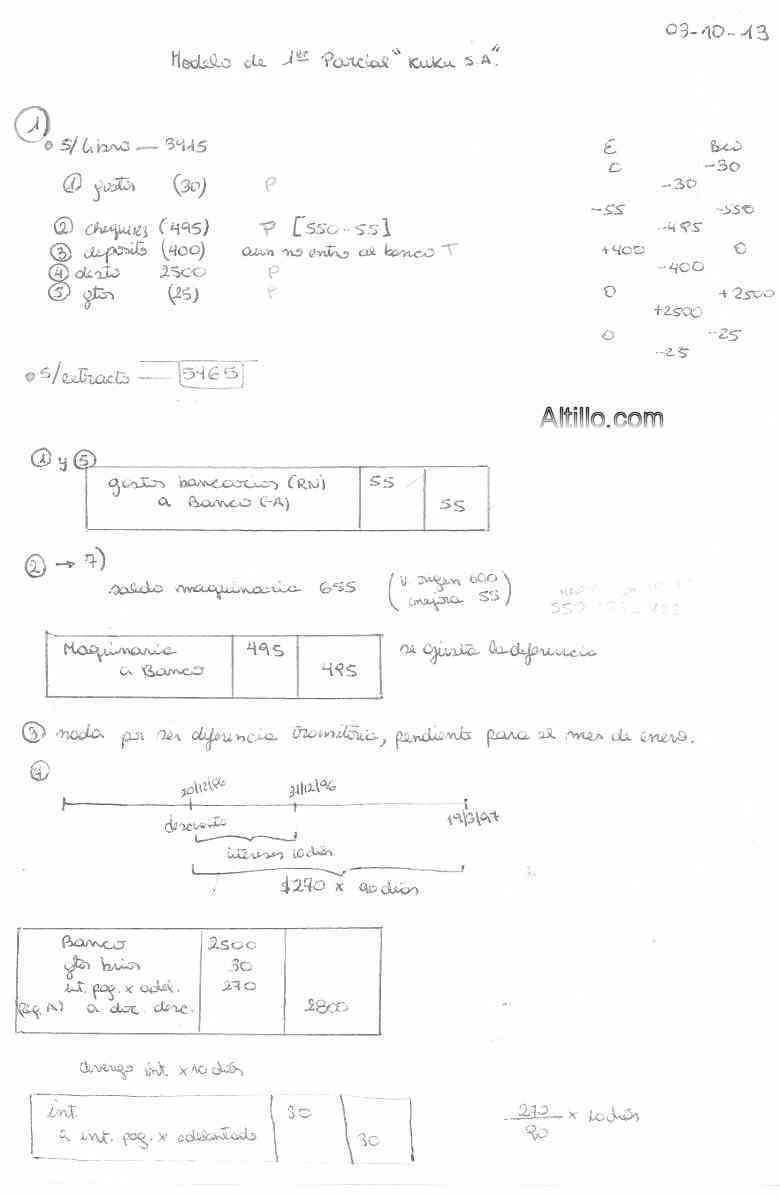 03-10-13
Modelo de 1er Parcial "Kuku S.A".
①
• S/Libro — 3915
E Bco
0 -30
① gastos (30) P
-30
② cheques (495) P [550-55]
-55 -550
-495
③ deposito (400) aun no entro al banco T
+400 0
-400
④ dcsto 2500 P
0 +2500
⑤ gtos (25) P
+2500
0 -25
-25
• S/extracto — 5465
Altillo.com
① y ⑤
gastos bancarios (RN) 55
a Banco (-A) 55
② → 7)
saldo maquinaria 655 (v. origen 600
mejora 55)
Maquinaria 495
a Banco 495
se ajusta la diferencia
③ nada por ser diferencia transitoria, pendiente para el mes de enero.
④
20/12/96 31/12/96
19/3/97
descuento
intereses 10 días
$270 x 90 días
Banco 2500
gtos brios 30
int. pag. x adel. 270
(Reg. A) a doc. desc. 2800
devengo int. x 10 días
int 30
a int. pag. x adelantado 30
270 x 10 días
90